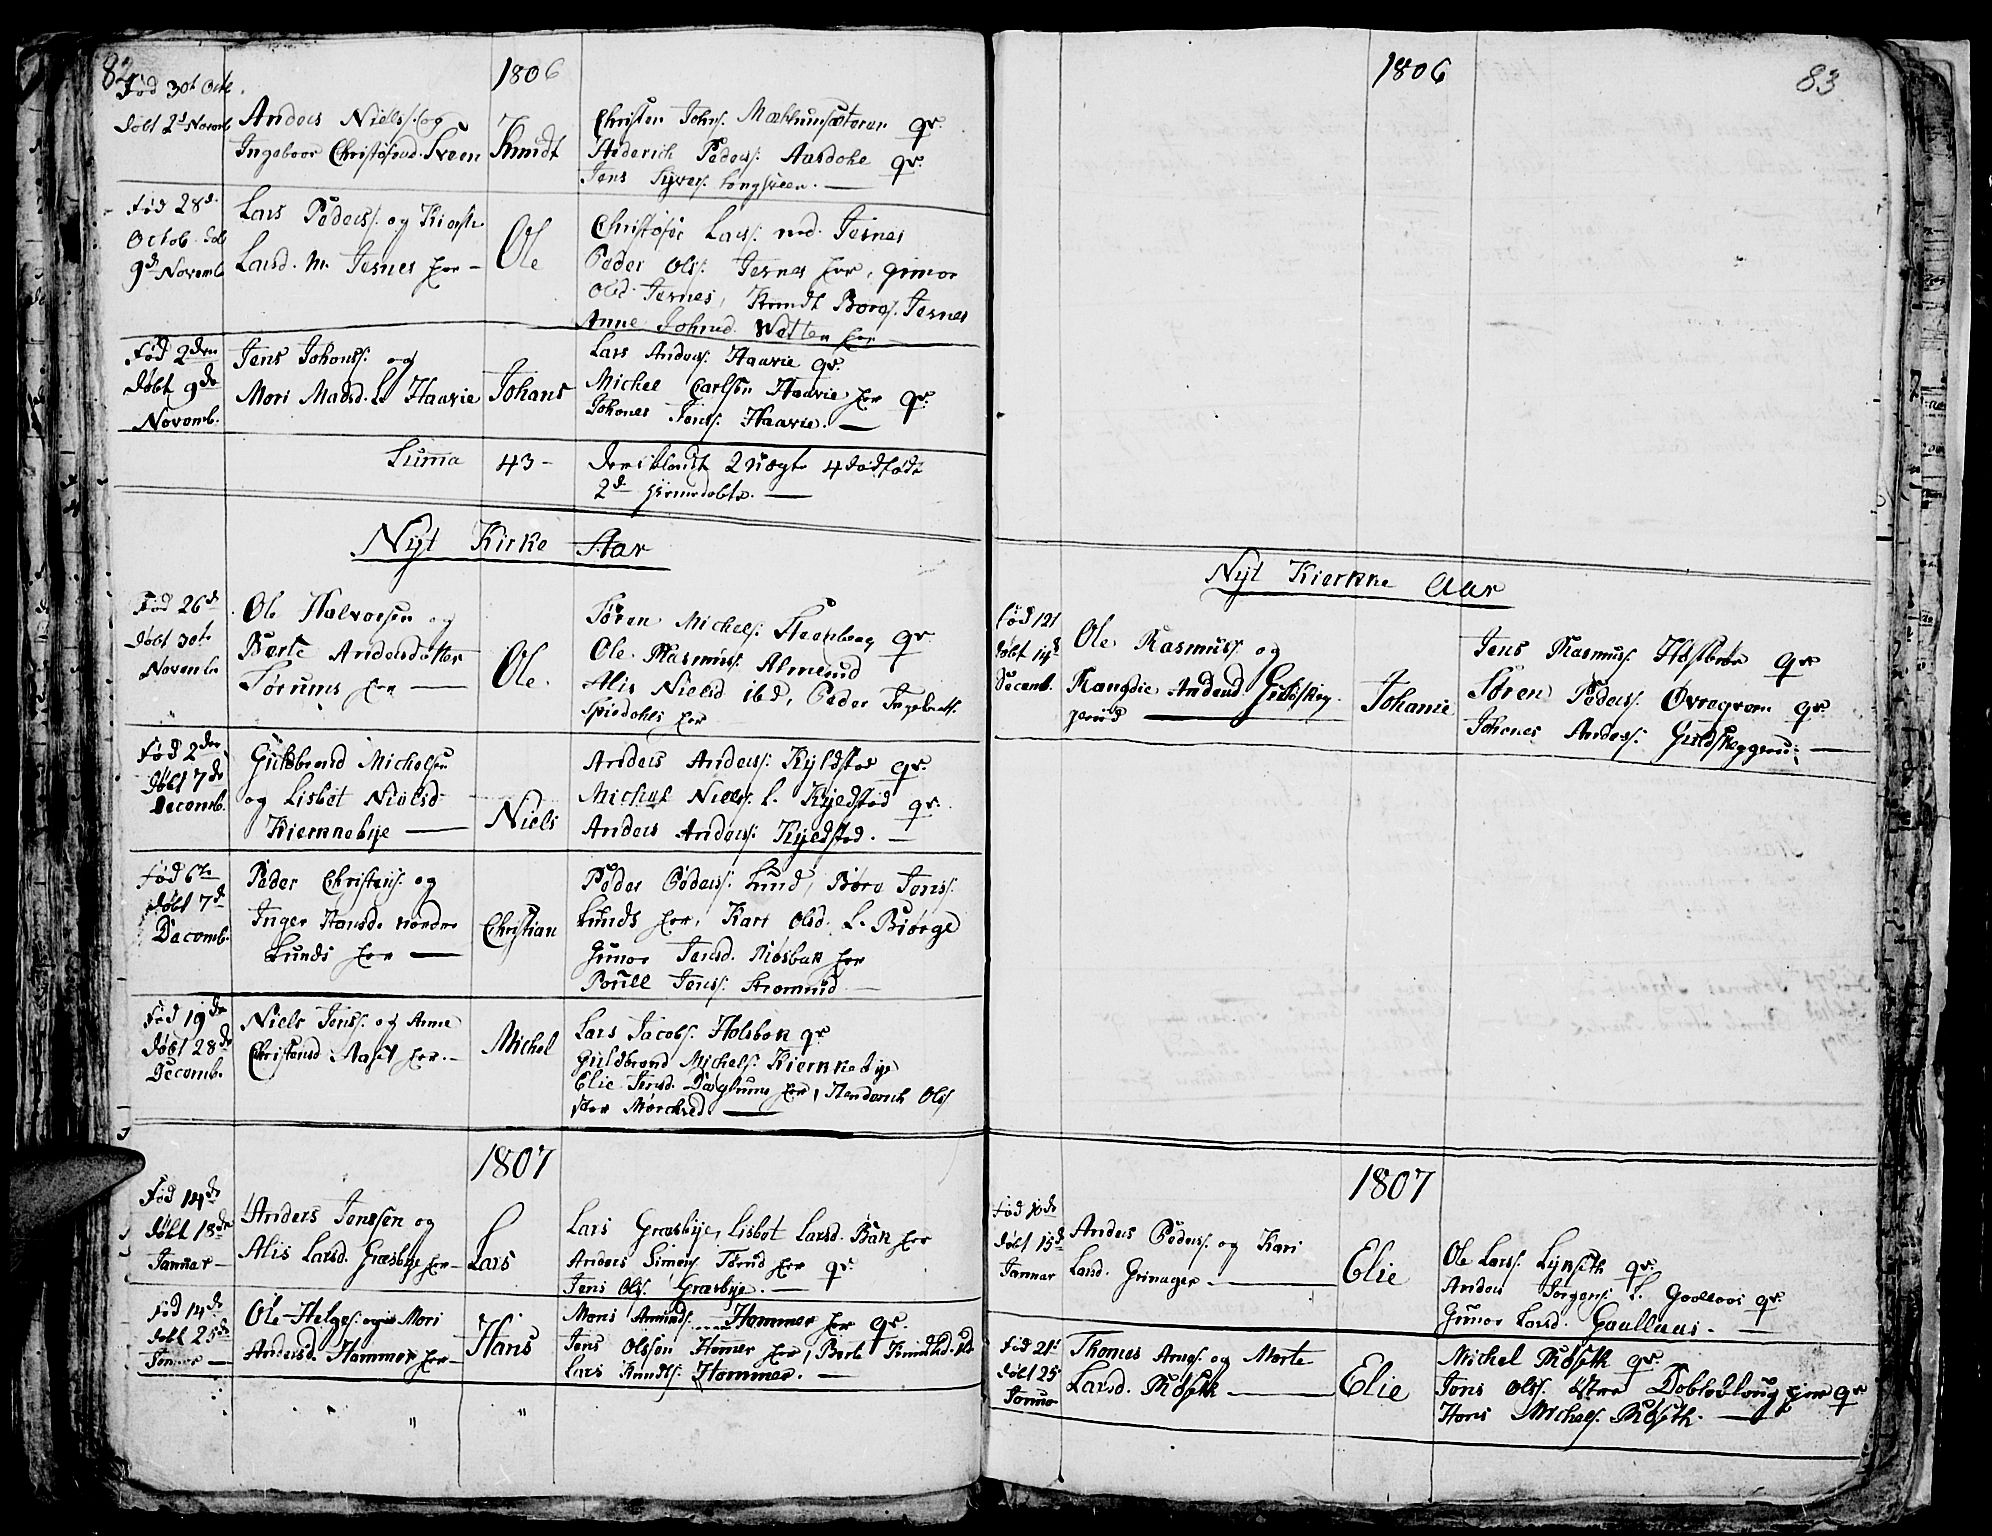 82
1806
Fød 30t Octb.
døbt 2d Novemb
Anders Nielss. og
Ingeboor Christofersd. Sveen
Knudt
Christen Johns.
Hederich Peders. qv.
Jens Syvers. Longsveen.
Fød 28d
Octob. døbt
9de Novemb
Lars Peders. og Kierste
Larsd. m. Jesnes her
Ole
Christofer Lars. ned. Jesnes
Peder Ols. Jesnes her, gunor
Olsd. Jesnes, Knudt Børes. Jesnes
Anne Johnsd. Watten her
Fød 2den
Døbt 9de
Novemb.
Jens Johans. og
Mari Madsd. L. Haavie
Johans
Lars Anders. Haavie qv.
Michel Carlsøn Haavie her qv.
Johanes Jens. Haavie.
Summa 43 - deriblandt 2 uægte 4 dødfødte
2de hjemedøbte.
Nyt Kirke Aar
Fød 26de
døbt 30te
Novembr
Ole Halvorsen og
Berte Andersdatter
Sørums her
Ole.
Søren Michels. Steenberg qv.
Ole Rasmus. Almerud
Alis Nielsd. ibd, Peder Ingebretts.
her
Fød 2den
døbt 7de
Decemb.
Guldbrand Michelsen
og Lisbet Nielsd.
Kiernnebye
Niels
Anders Anders. Kyldstad qv.
Michel Niels. L. Kyeldstad qv.
Anders Anders. Kyeldstad.
Fød 6te
døbt 7de
Decemb.
Peder Christens. og
Inger Hansd. nordre
Lunds her
Christian
Peder Peders. Lund, Børe Jens.
Lunds her, Kari Olsd. L. Biørge
Gunor Jensd. Møsbak her
Poull Jens. Aromnd
Fød 19de
døbt 28de
Decemb.
Niels Jens. og Anne
Christensd. Aaset her.
Michel
Lars Jacobs. Holsbak qv
Guldbrand Michels. Kiernnebye
Elie Jensd. Døglrums her, Henderich Ols
stor Mørchved
1807
Fød 14de
døbt 18de
Januar
Anders Jenssen og
Alis Larsd. Græsbye her
Lars
Lars Græsbye, Lisbet Larsd. Bak her
Anders Simens. Tørud her qv
Jens Ols. Græsbye.
Fød 14de
døbt 25de
Januar
Ole Helges. og Mari
Andersd. Hammer her
Hans
Mons Amunds. Hammer her qv.
Jens Olssen Hamer her, Berte Knudsd. ibd
Lars Knuds. Hommer.
1806
83
Nyt Kierkne Aar
Fød 12t
døbt 14d
Decemb.
Ole Rasmus. og
Rangdie Andersd. Guldskeg
gerud
Johanie
Jens Rasmus. Høsbrøe qv
Søren Peders. Øvregrom qv.
Johanes Anders. Guldskeggerud
1807
Fød 10de
døbt 15d
Januar
Anders Peders. og Kari
Larsd. Grinager
Elie
Ole Lars. Lynseth qv.
Anders Jørgens. L. Gaalaas qv.
Gunor Larsd. Gaallaas.
Fød 21t
døbt 25
Januar
Thomas Arnes. og Marte
Larsd. Røseth
Elie
Michel Røseth qv.
Jens Ols. østre Dobledloug her qv
Hans Michels. Røseth.